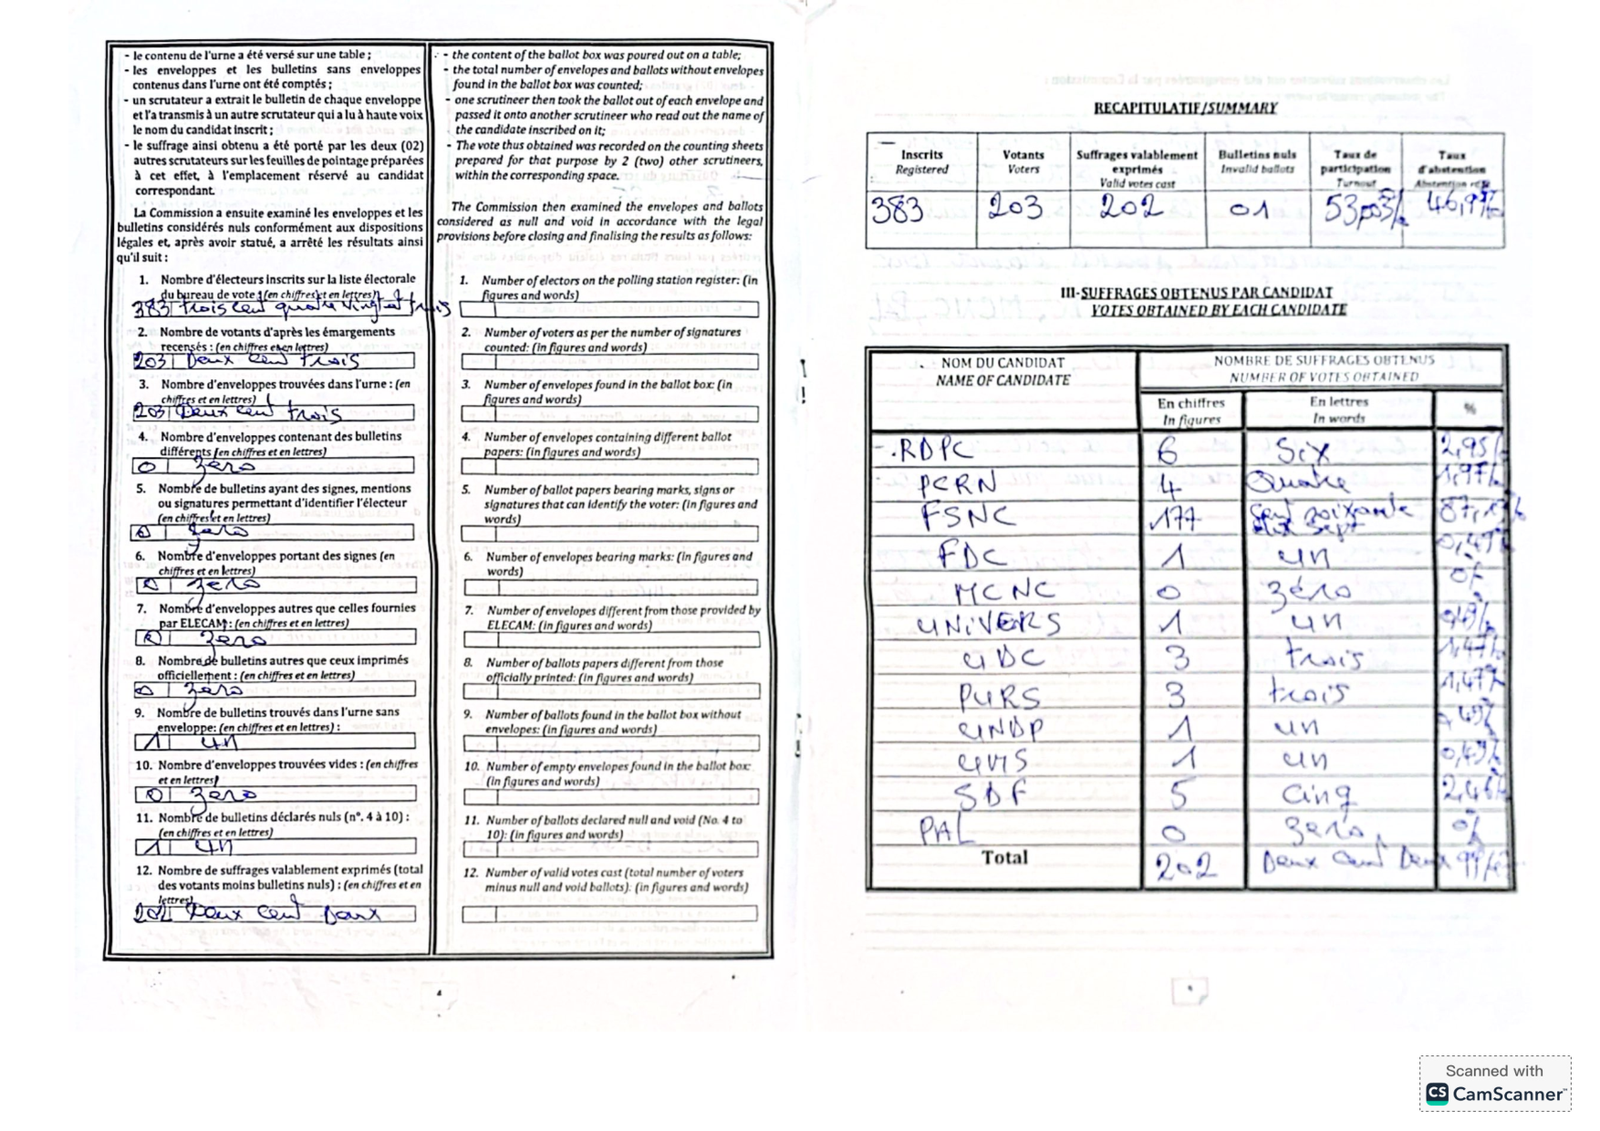 - le contenu de l'urne a été versé sur une table ;
- les enveloppes et les bulletins sans enveloppes
contenus dans l'urne ont été comptés ;
- un scrutateur a extrait le bulletin de chaque enveloppe
et l'a transmis à un autre scrutateur qui a lu à haute voix
le nom du candidat inscrit ;
- le suffrage ainsi obtenu a été porté par les deux (02)
autres scrutateurs sur les feuilles de pointage préparées
à cet effet, à l'emplacement réservé au candidat
correspondant.
La Commission a ensuite examiné les enveloppes et les
bulletins considérés nuls conformément aux dispositions
légales et, après avoir statué, a arrêté les résultats ainsi
qu'il suit :
1. Nombre d'électeurs inscrits sur la liste électorale
du bureau de vote : (en chiffres et en lettres)
383 trois cent quatre vingt et trois
2. Nombre de votants d'après les émargements
recensés : (en chiffres et en lettres)
203 Deux cent trois
3. Nombre d'enveloppes trouvées dans l'urne : (en
chiffres et en lettres)
203 Deux cent trois
4. Nombre d'enveloppes contenant des bulletins
différents (en chiffres et en lettres)
0 zéro
5. Nombre de bulletins ayant des signes, mentions
ou signatures permettant d'identifier l'électeur
(en chiffres et en lettres)
0 zéro
6. Nombre d'enveloppes portant des signes (en
chiffres et en lettres)
0 zéro
7. Nombre d'enveloppes autres que celles fournies
par ELECAM : (en chiffres et en lettres)
0 zéro
8. Nombre de bulletins autres que ceux imprimés
officiellement : (en chiffres et en lettres)
0 zéro
9. Nombre de bulletins trouvés dans l'urne sans
enveloppe: (en chiffres et en lettres) :
1 un
10. Nombre d'enveloppes trouvées vides : (en chiffres
et en lettres)
0 zéro
11. Nombre de bulletins déclarés nuls (n°. 4 à 10) :
(en chiffres et en lettres)
1 un
12. Nombre de suffrages valablement exprimés (total
des votants moins bulletins nuls) : (en chiffres et en
lettres)
202 Deux cent Deux
- the content of the ballot box was poured out on a table;
- the total number of envelopes and ballots without envelopes
found in the ballot box was counted;
- one scrutineer then took the ballot out of each envelope and
passed it onto another scrutineer who read out the name of
the candidate inscribed on it;
- The vote thus obtained was recorded on the counting sheets
prepared for that purpose by 2 (two) other scrutineers,
within the corresponding space.
The Commission then examined the envelopes and ballots
considered as null and void in accordance with the legal
provisions before closing and finalising the results as follows:
1. Number of electors on the polling station register: (in
figures and words)
2. Number of voters as per the number of signatures
counted: (in figures and words)
3. Number of envelopes found in the ballot box: (in
figures and words)
4. Number of envelopes containing different ballot
papers: (in figures and words)
5. Number of ballot papers bearing marks, signs or
signatures that can identify the voter: (in figures and
words)
6. Number of envelopes bearing marks: (in figures and
words)
7. Number of envelopes different from those provided by
ELECAM: (in figures and words)
8. Number of ballots papers different from those
officially printed: (in figures and words)
9. Number of ballots found in the ballot box without
envelopes: (in figures and words)
10. Number of empty envelopes found in the ballot box:
(in figures and words)
11. Number of ballots declared null and void (No. 4 to
10): (in figures and words)
12. Number of valid votes cast (total number of voters
minus null and void ballots): (in figures and words)
RECAPITULATIF/SUMMARY
Inscrits Registered | Votants Voters | Suffrages valablement exprimés Valid votes cast | Bulletins nuls Invalid ballots | Taux de participation Turnout | Taux d'abstention Abstention
383 203 202 01 46,97%
III-SUFFRAGES OBTENUS PAR CANDIDAT
VOTES OBTAINED BY EACH CANDIDATE
NOM DU CANDIDAT NOMBRE DE SUFFRAGES OBTENUS
NAME OF CANDIDATE NUMBER OF VOTES OBTAINED
En chiffres En lettres %
In figures In words
RDPC 6 Six 2,95%
PCRN 4 Quatre 1,97%
FSNC 177 Cent soixante dix sept
FDC 1 un 0,49%
MCNC 0 zéro 0%
UNIVERS 1 un 0,49%
UDC 3 trois 1,47%
PURS 3 trois 1,47%
UNDP 1 un 0,49%
UMS 1 un 0,49%
SDF 5 cinq 2,46%
PAL 0 zéro 0%
Total 202 Deux Cent Deux
Scanned with
CS CamScanner